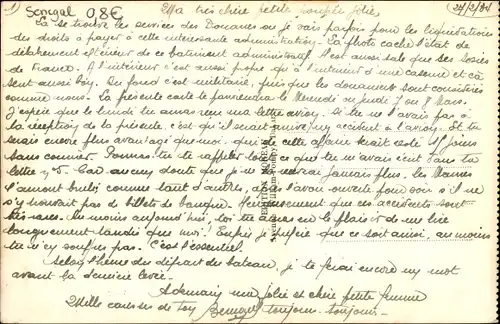 1) Senegal 08€ Ma très chère petite poupée jolie, 24/2/34
Là se trouve les services des Douanes ou je vais parfois pour les liquidations
des droits à payer à cette intéressante administration. La photo cache l'état de
délabrement extérieur de ce batiment administratif. C'est aussi sale que ses sosies
de France. A l'intérieur c'est aussi propre qu'à l'intérieur d'une caserne et cà
sent aussi bon. Du fond c'est militaire, puis que les douaniers sont considérés
comme nous. La présente carte te parviendra le Mercredi ou Jeudi 7 ou 8 Mars.
J'espère que le lundi tu auras reçu ma lettre avion. Si tu ne l'avais pas à
la réception de la présente, c'est qu'il serait arrivé un accident à l'avion. Et tu
serais encore plus avantagé que moi, que de cette affaire serait resté 17 jours
sans courrier. Pourras-tu te rappeler tout ce que tu m'avais écrit dans ta
lettre 25. Car aucun doute que je ne la verrai jamais plus. Les Maures
l'auront brulé comme tant d'autres, après l'avoir ouverte pour voir s'il ne
s'y trouvait pas de billets de banque. Heureusement que ces accidents sont
très rares. Du moins aujourd'hui, toi tu auras eu le plaisir de me lire
longuement tandis que moi! Enfin je préfère que ce soit ainsi, au moins
tu n'y souffres pas. C'est l'essentiel.
Selon l'heure du départ du bateau, je te ferai encore un mot
avant la dernière levée.
A demain ma jolie et chère petite femme
Mille caresses de ton toujours toujours.